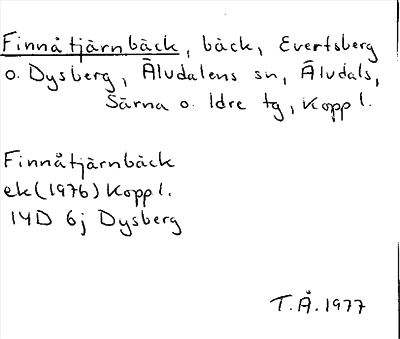 Finnåtjärnbäck, bäck, Evertsberg
o. Dysberg, Älvdalens sn, Älvdals,
Särna o. Idre tg, Koppl.
Finnåtjärnbäck
ek (1976) Koppl.
14D 6j Dysberg
T.Å. 1977